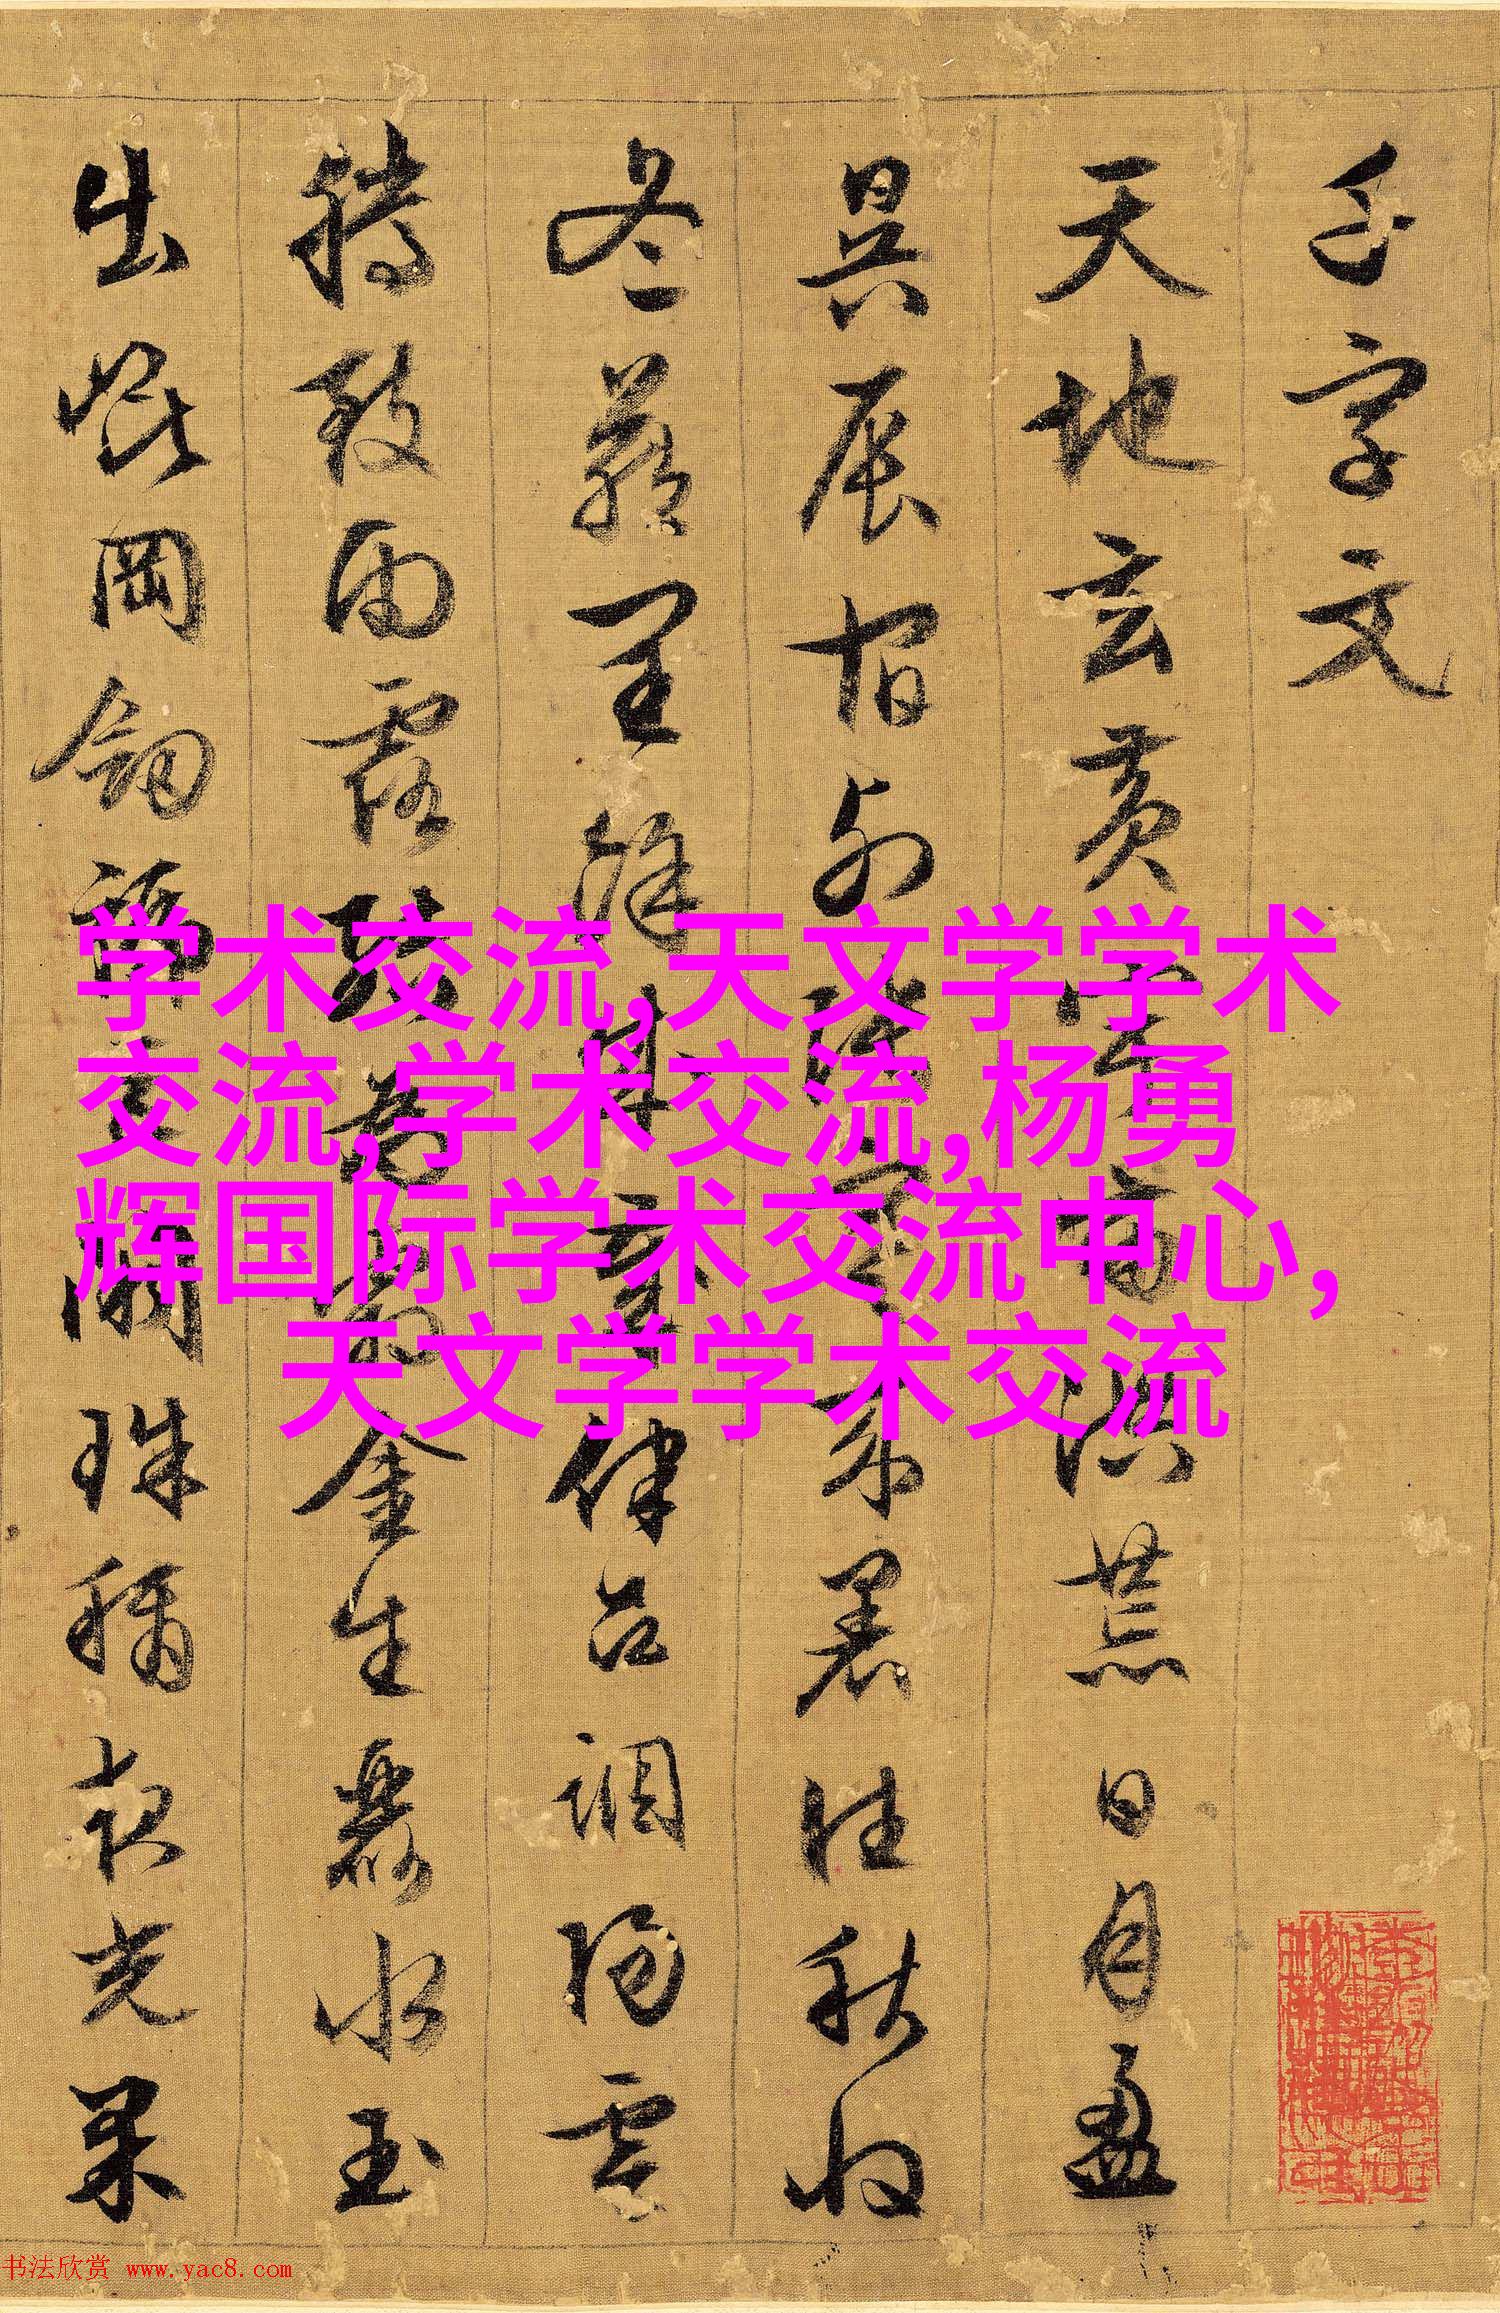 千字文
天地玄黄宇宙洪荒日月盈
昃辰宿列張寒来暑往秋收
冬蔵閏餘成歲律吕調陽雲
騰致雨露結為霜金生麗水玉
出崐岡劍號巨闕珠稱夜光果
学术交流,天文学学术
交流,学术交流,杨勇
辉国际学术交流中心,
天文学学术交流
书法欣赏 www.yac8.com